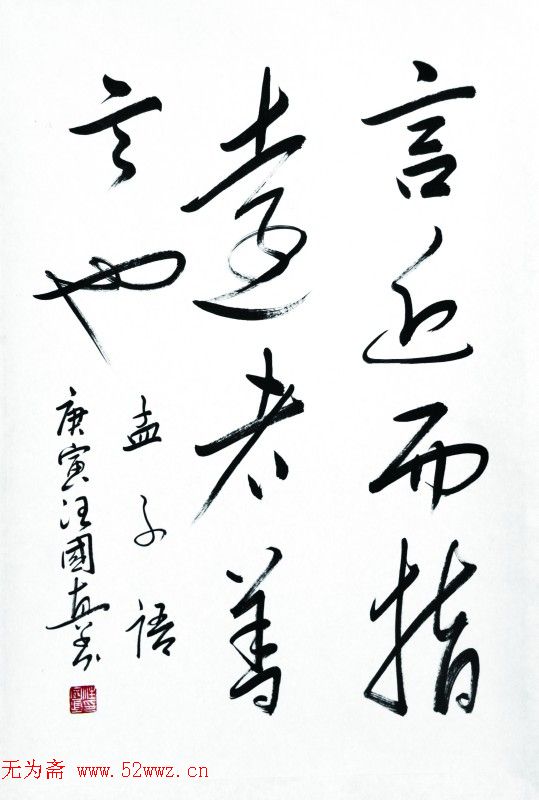 言近而指
遠者善
言也
孟子語
庚寅汪國真書
无为斋 www.52wwz.cn